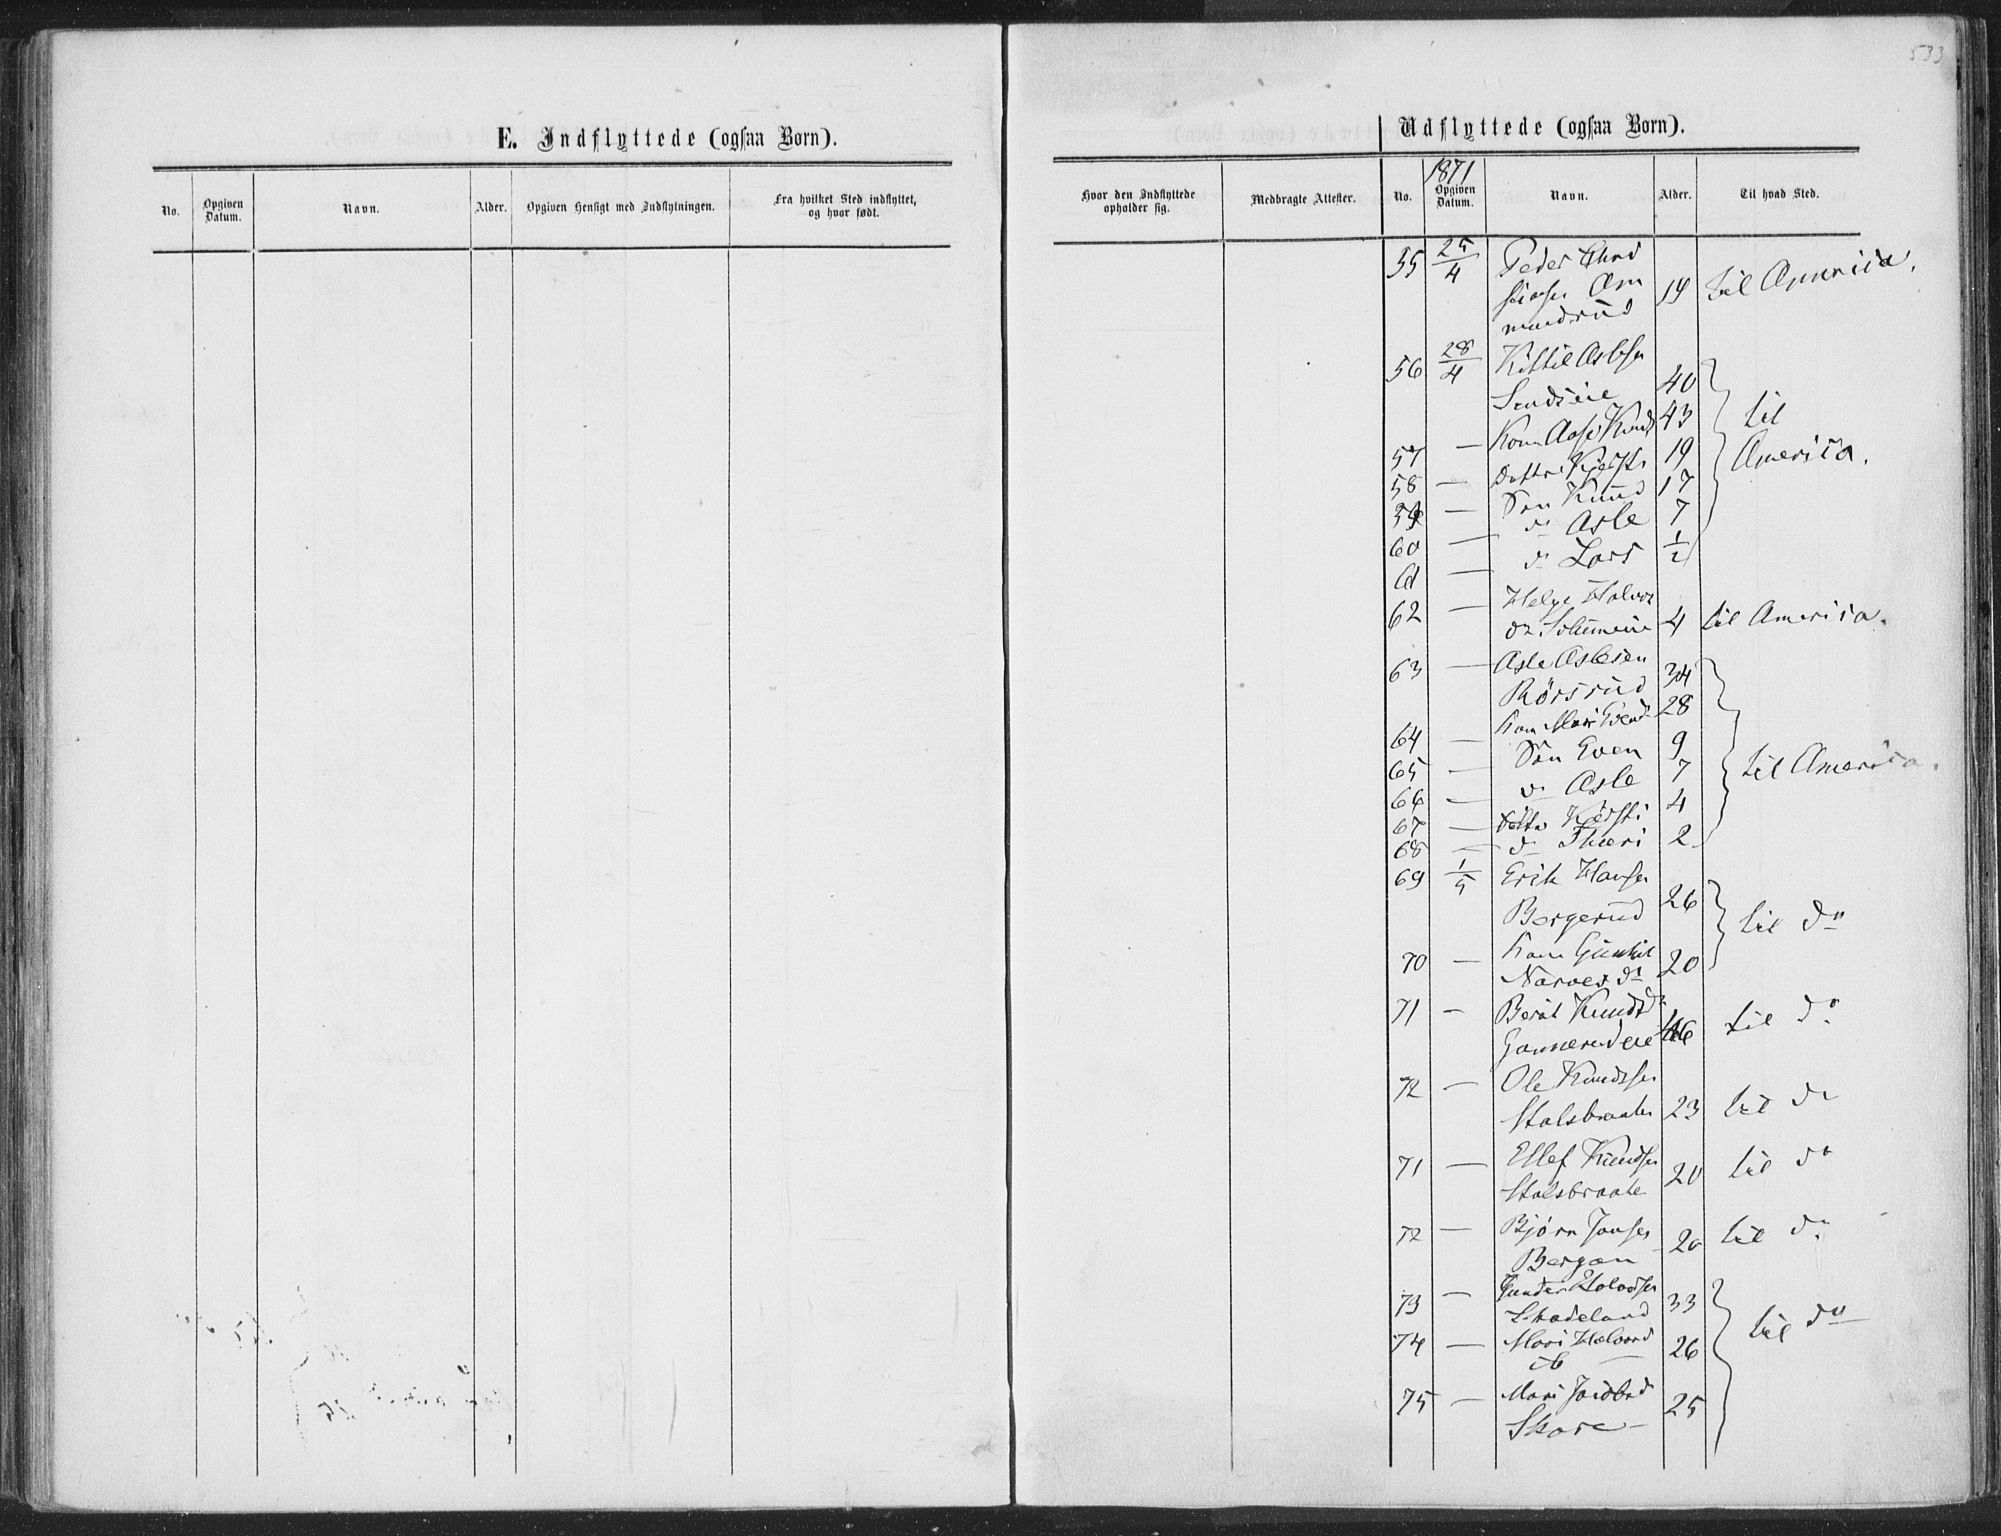 533
E. Indflyttede (ogsaa Børn).
Udflyttede (ogsaa Børn).
No. Opgiven Datum. Navn. Alder. Opgiven Hensigt med Indflytningen. Fra hvilket Sted indflyttet, og hvor født.
Hvor den Indflyttede opholder sig. Medbragte Attester. No. 1871 Opgiven Datum. Navn. Alder. Til hvad Sted.
55 25/4 Peder
mandsrud 14 til America.
56 28/4 Kittil Aslesen
40
57 — Kone Knuds 43 til
58 — Datter 19 America.
59 — Søn Knud 17
60 — do Asle 7
61 — do Lars 1/2
62 — Helge Halvor
4 til America.
63 — Asle Aslesen
Rørsrud 34
64 — Kone Mari 28
65 — Søn Even 9
66 — do Asle 7 til America.
67 — Kersti 4
68 — do Thuri 2
69 1/5 Erik Hansen
Bergerud 26 til do
70 — Kone Gunhil
Narvesd 20
71 — Berit Knudsd
46 til do
72 — Ole Knudsen
Stalsbraaten 23 til do
71 — Ellef Knudsen
Stalsbraaten 20 til do
72 — Bjørn Jonsen
Bergan 20 til do
73 — Gunder
33
74 — Mari Halvord
ib — 26 til do
75 — Mari
Skare — 25